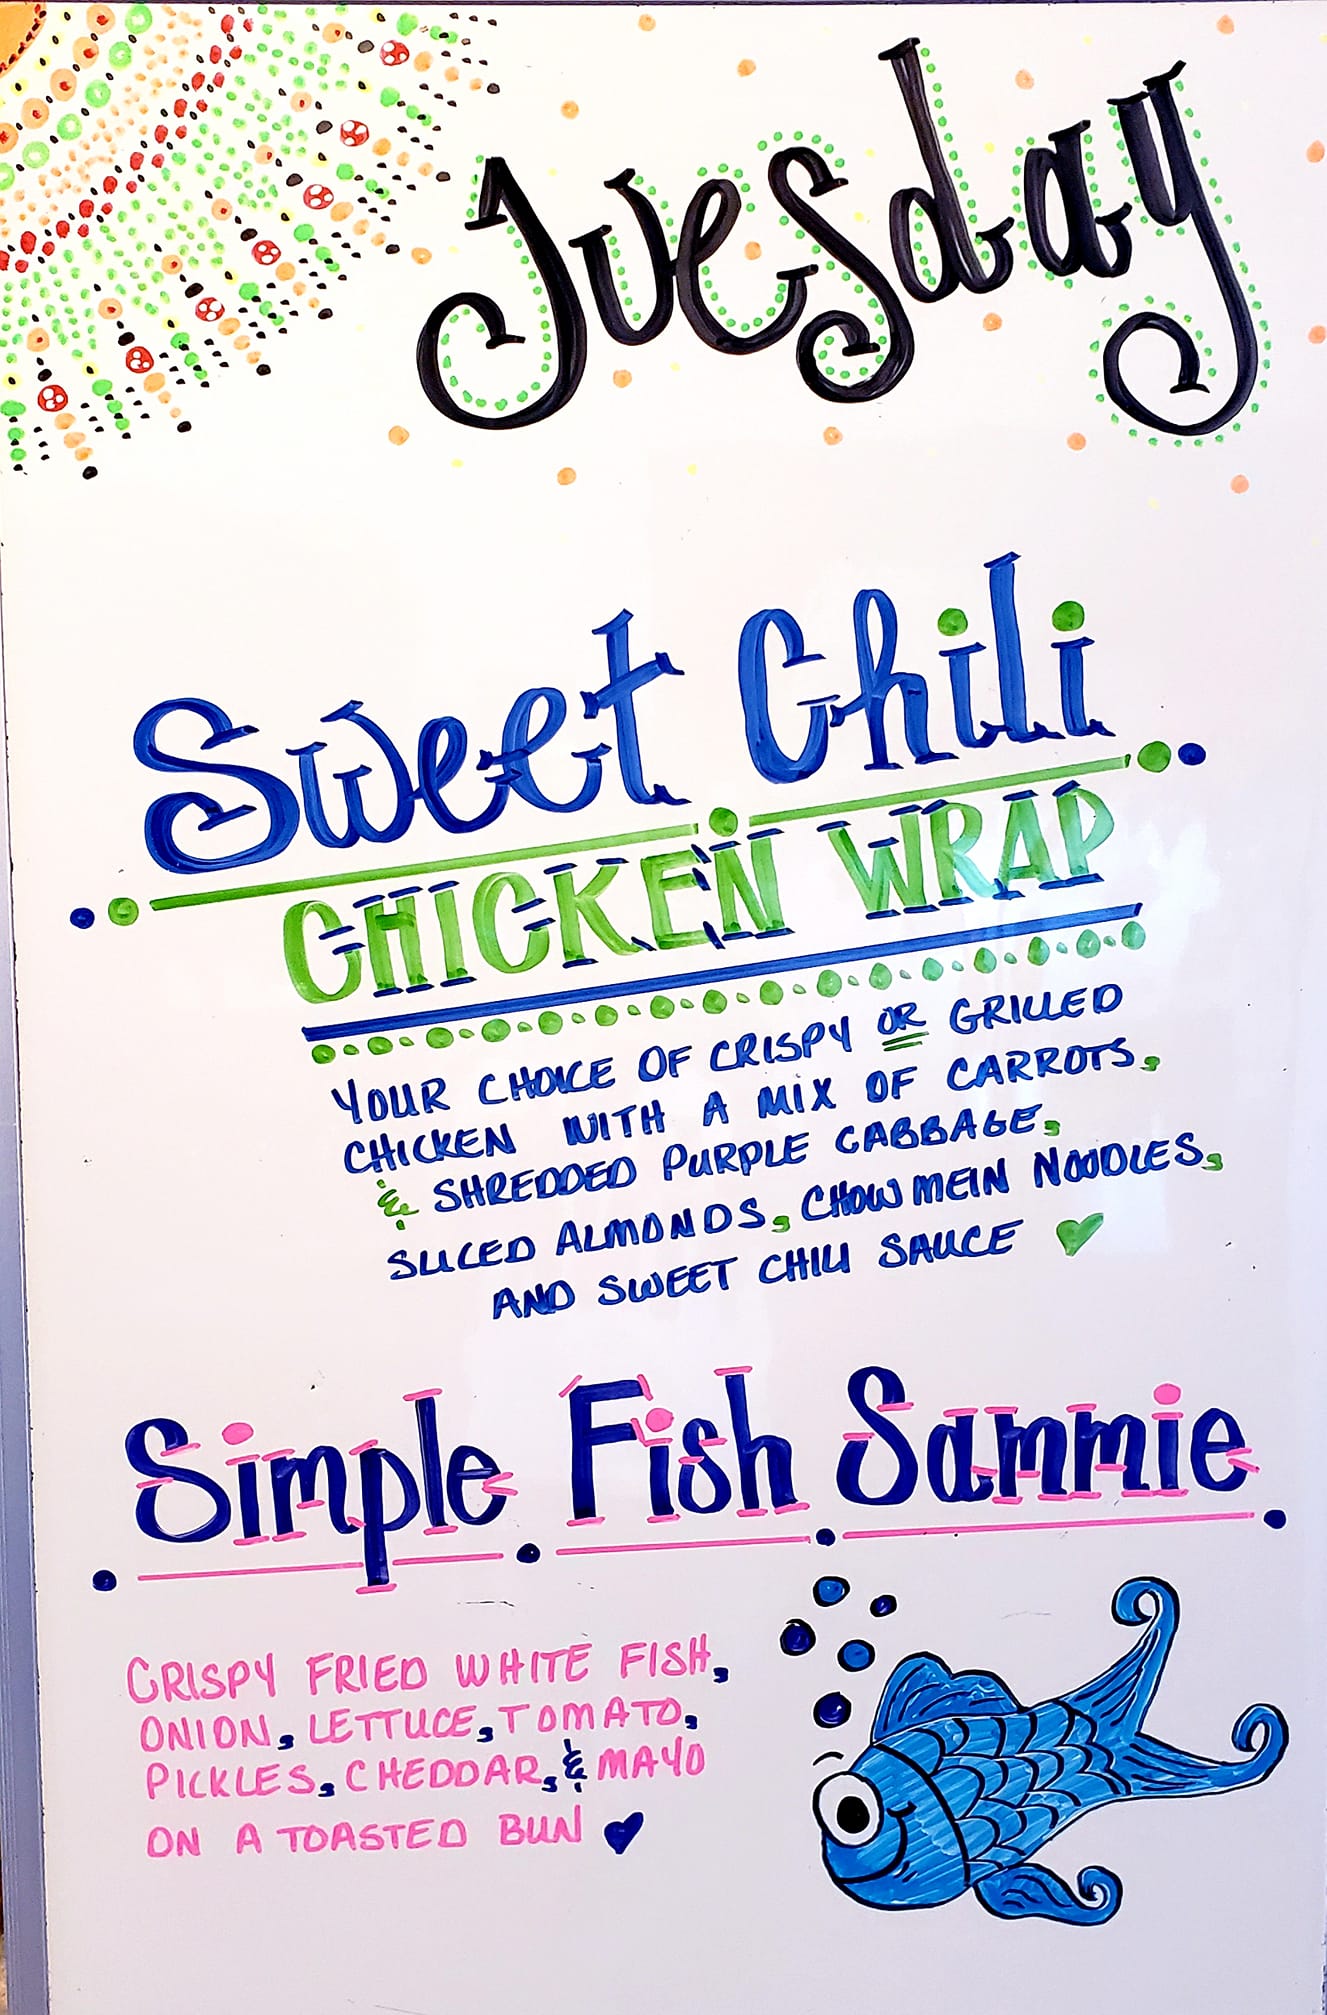 Tuesday
Sweet Chili
CHICKEN WRAP
YOUR CHOICE OF CRISPY OR GRILLED
CHICKEN WITH A MIX OF CARROTS,
& SHREDDED PURPLE CABBAGE,
SLICED ALMONDS, CHOWMEIN NOODLES,
AND SWEET CHILI SAUCE
Simple Fish Sammie
CRISPY FRIED WHITE FISH,
ONION, LETTUCE, TOMATO,
PICKLES, CHEDDAR, & MAYO
ON A TOASTED BUN